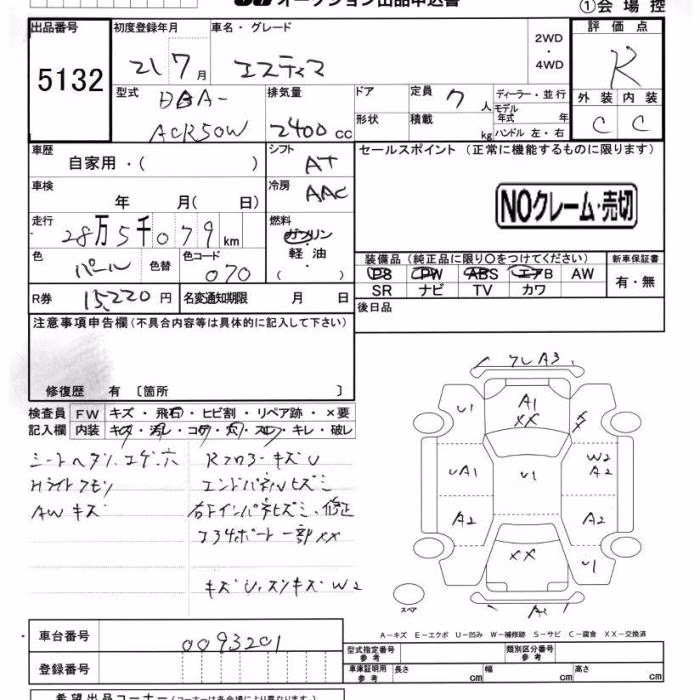 オークション出品申込書
①会場控
出品番号 初度登録年月 車名・グレード 評価点
5132 21 7月 エスティマ 2WD ・ 4WD R
型式 DBA- ACR50W
排気量 2400cc
ドア 定員 7人 ディーラー・並行
形状 積載 kg モデル年式 年
ハンドル 左・右
外装 内装
C C
車歴 自家用・( )
シフト AT
セールスポイント (正常に機能するものに限ります)
車検 年 月( 日)
冷房 AAC
NOクレーム・売切
走行 28万5千079km
燃料 ガソリン ・ 軽油 ・ ( )
色 パール 色替 色コード 070
装備品 (純正品に限り○をつけてください) 新車保証書
PS PW ABS エアB AW 有・無
SR ナビ TV カワ
R券 15,220円 名変通知期限 月 日
後日品
注意事項申告欄(不具合内容等は具体的に記入して下さい)
修復歴 有 〔箇所 〕
検査員 FW キズ・飛石・ヒビ割・リペア跡・×要
記入欄 内装 キズ・汚レ・コゲ・穴・スレ・キレ・破レ
シートヘタリ、コゲ、穴 Rフロアーキズ U
Hライトクモリ エンドパネルヒズミ
AWキズ
一部XX
キズ U、スリキズ W2
フレA3
U1 A1 XX
UA1 U1 W2 A2
A2 A2
XX U1
A1
スペア
A-キズ E-エクボ U-凹み W-補修跡 S-サビ C-腐食 XX-交換済
車台番号 0093201
型式指定番号 参考 類別区分番号 参考
登録番号
車庫証明用 参考 長さ cm 幅 cm 高さ cm
希望出品コーナー(コーナーは各会場により異なります)